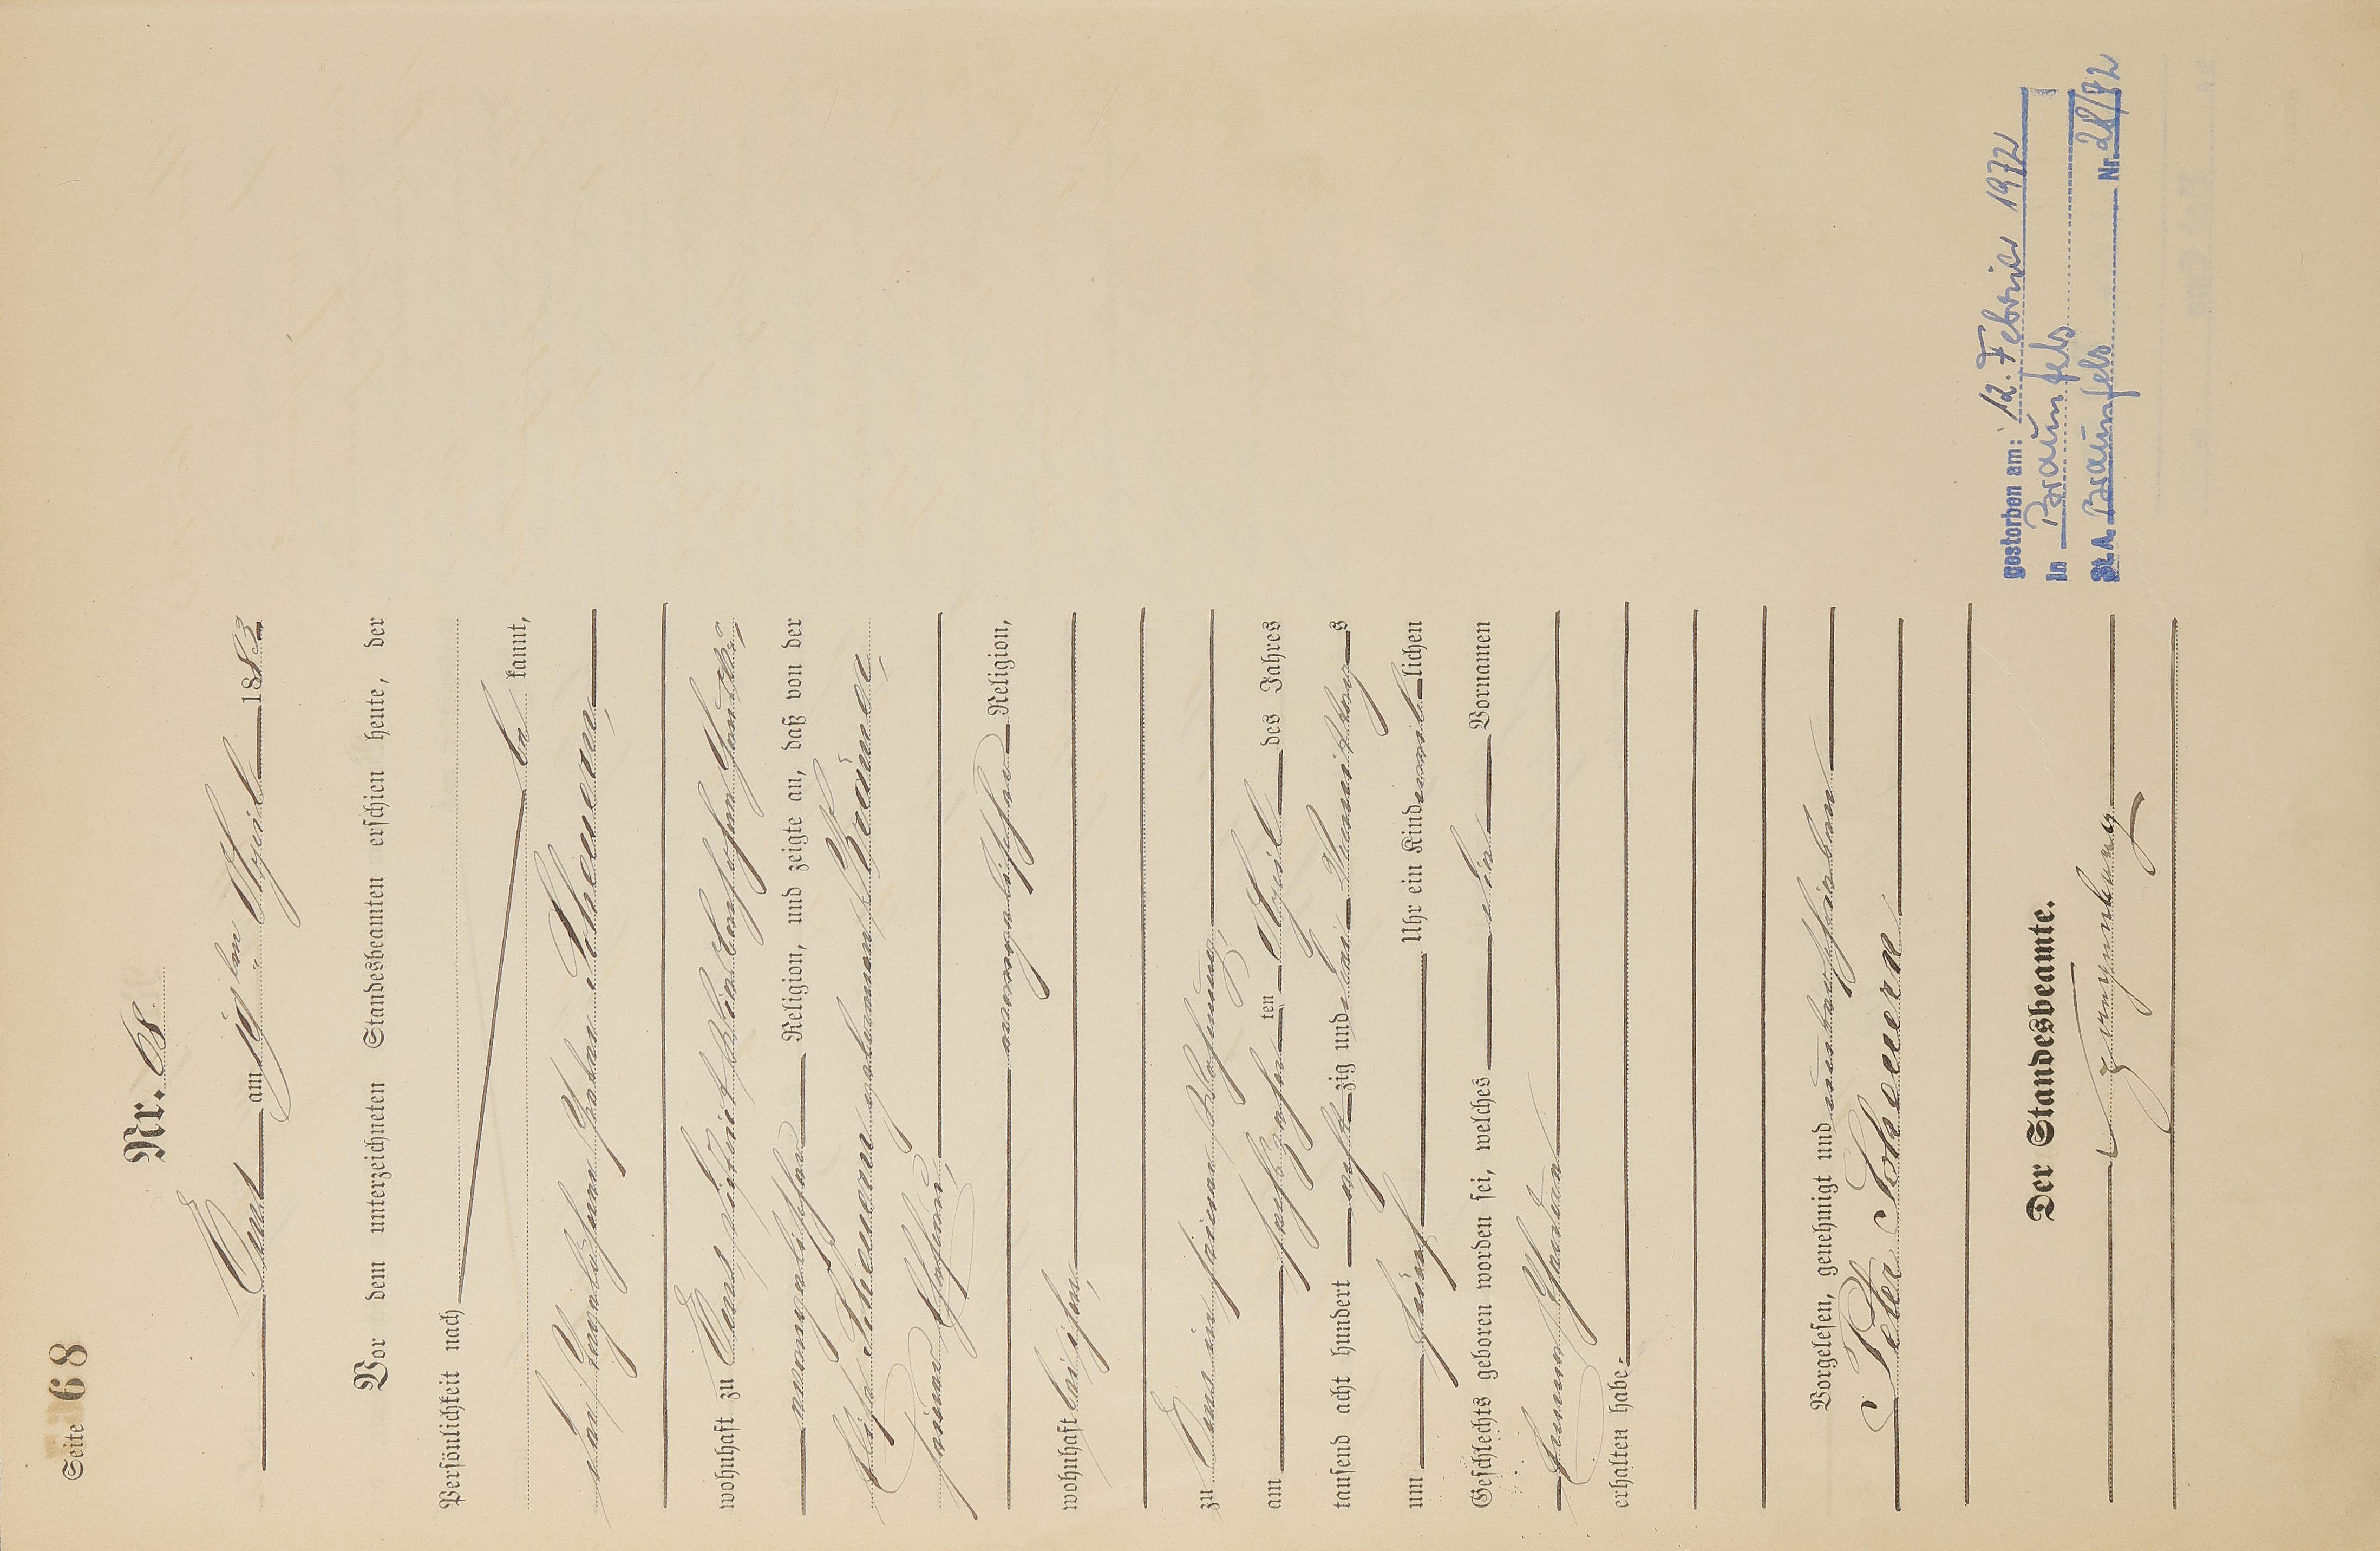 Seite 68
Nr. 68.
Ems am 19ten April 1883
Vor dem unterzeichneten Standesbeamten erschien heute, der
Persönlichkeit nach
be kannt,
der Tagelöhner Peter Scheuern,
wohnhaft zu Ems
evangelischer Religion, und zeigte an, daß von der
Scheuern geborenen Bräuner
seiner Ehefrau,
evangelischer Religion,
wohnhaft bei ihm,
zu Ems in seiner Wohnung,
am sechszehnten April des Jahres
tausend acht hundert achtzig und drei Vormittags
um fünf Uhr ein Kind weiblichen
Geschlechts geboren worden sei, welches die Vornamen
erhalten habe.
Vorgelesen, genehmigt und unterschrieben
Peter Scheuern
Der Standesbeamte.
gestorben am: 12. Februar 1972
in Braunfels
St. A. Braunfels Nr. 28/72